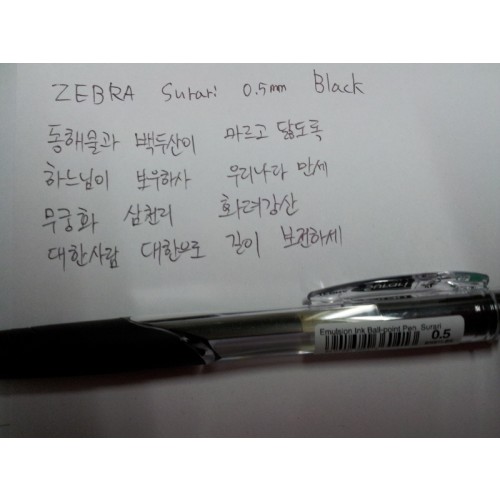 ZEBRA Surari 0.5mm Black
동해물과 백두산이 마르고 닳도록
하느님이 보우하사 우리나라 만세
무궁화 삼천리 화려강산
대한사람 대한으로 길이 보전하세
Emulsion Ink Ball-point Pen, Surari
0.5